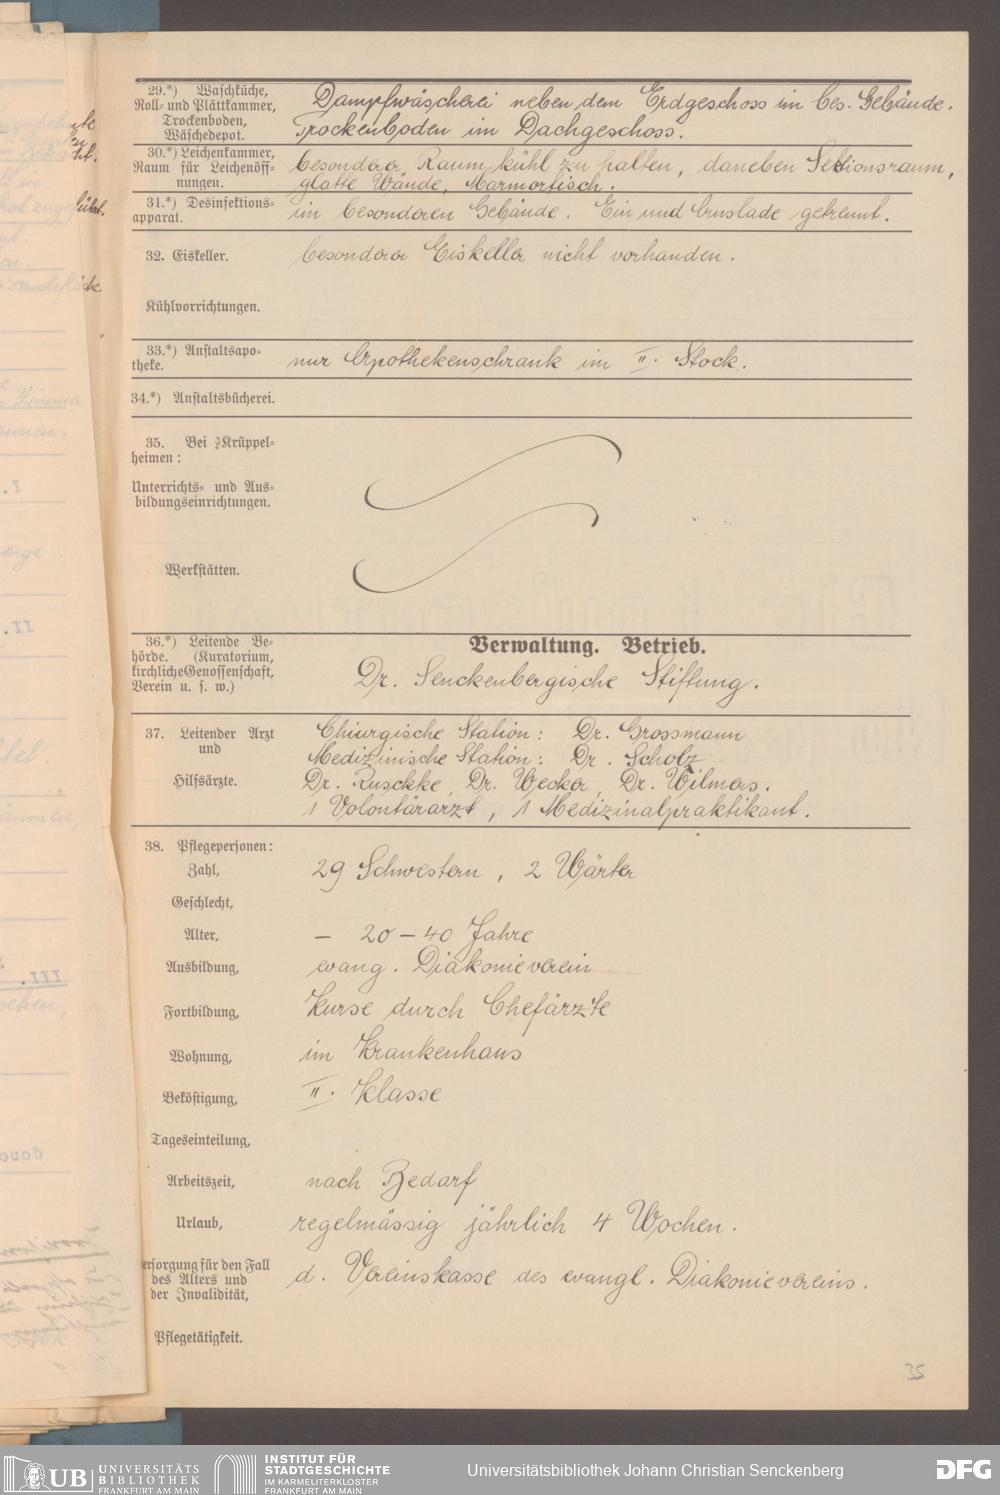 29.*) Waschküche,
Roll- und Plättkammer,
Trockenboden,
Wäschedepot.
Dampfwäscherei neben dem Erdgeschoss im bes. Gebäude.
Trockenboden im Dachgeschoss.
30.*) Leichenkammer,
Raum für Leichenöff-
nungen.
besonderer Raum, kühl zu halten, daneben Sektionsraum,
glatte Wände, Marmortisch.
31.*) Desinfektions-
apparat.
im besonderen Gebäude. Ein und Auslade getrennt.
32. Eiskeller.
besonderer Eiskeller nicht vorhanden.
Kühlvorrichtungen.
33.*) Anstaltsapo-
theke.
nur Apothekenschrank im II. Stock.
34.*) Anstaltsbücherei.
35. Bei Krüppel-
heimen:
Unterrichts- und Aus-
bildungseinrichtungen.
Werkstätten.
Verwaltung. Betrieb.
36.*) Leitende Be-
hörde. (Kuratorium,
kirchliche Genossenschaft,
Verein u. s. w.)
Dr. Senckenbergische Stiftung.
37. Leitender Arzt
und
Hilfsärzte.
Chirurgische Station: Dr. Grossmann
Medizinische Station: Dr. Scholz
Dr. Ruschke, Dr. Wecker, Dr. Wilmers.
1 Volontärarzt, 1 Medizinalpraktikant.
38. Pflegepersonen:
Zahl, 29 Schwestern, 2 Wärter
Geschlecht,
Alter, – 20–40 Jahre
Ausbildung, evang. Diakonieverein
Fortbildung, Kurse durch Chefärzte
Wohnung, im Krankenhaus
Beköstigung, II. Klasse
Tageseinteilung,
Arbeitszeit, nach Bedarf
Urlaub, regelmässig jährlich 4 Wochen.
ersorgung für den Fall
des Alters und
der Invalidität,
d. Vereinskasse des evangl. Diakonievereins.
Pflegetätigkeit.
35
UB UNIVERSITÄTS
BIBLIOTHEK
FRANKFURT AM MAIN
INSTITUT FÜR
STADTGESCHICHTE
IM KARMELITERKLOSTER
FRANKFURT AM MAIN
Universitätsbibliothek Johann Christian Senckenberg
DFG